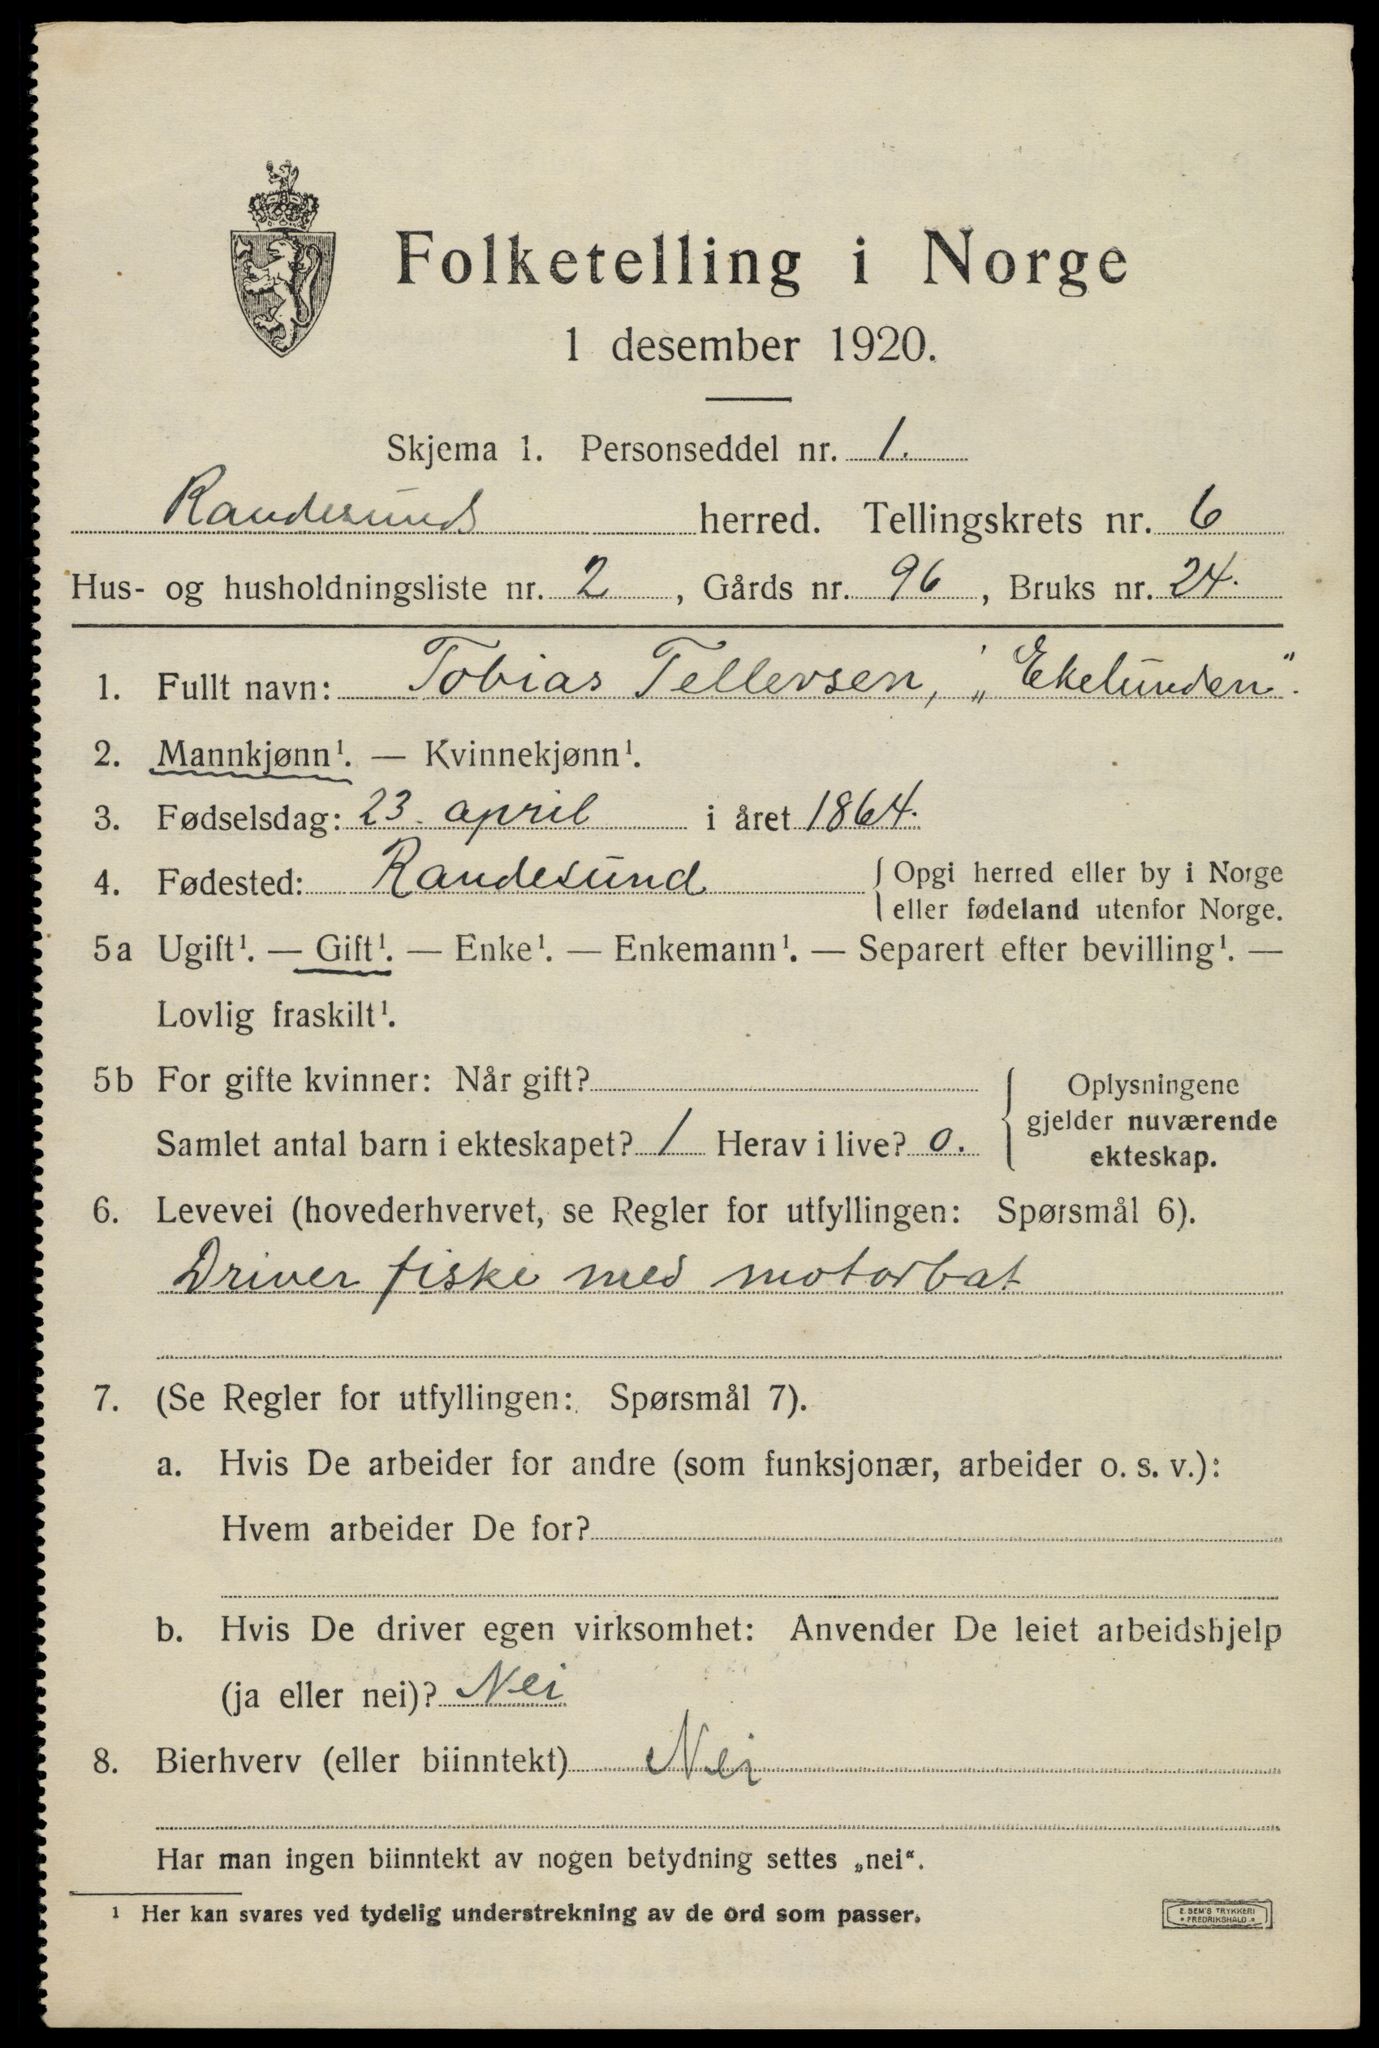 Folketelling i Norge
1 desember 1920.
Skjema 1. Personseddel nr. 1.
Randesund herred. Tellingskrets nr. 6
Hus- og husholdningsliste nr. 2, Gårds nr. 96, Bruks nr. 24.
1. Fullt navn: Tobias Tellevsen, „Ekelunden“.
2. Mannkjønn¹. — Kvinnekjønn¹.
3. Fødselsdag: 23. april i året 1864.
4. Fødested: Randesund { Opgi herred eller by i Norge
eller fødeland utenfor Norge.
5a Ugift¹. — Gift¹. — Enke¹. — Enkemann¹. — Separert efter bevilling¹. —
Lovlig fraskilt¹.
5b For gifte kvinner: Når gift? { Oplysningene
gjelder nuværende
Samlet antal barn i ekteskapet? 1 Herav i live? 0.
ekteskap.
6. Levevei (hovederhvervet, se Regler for utfyllingen: Spørsmål 6).
Driver fiske med motorbat
7. (Se Regler for utfyllingen: Spørsmål 7).
a. Hvis De arbeider for andre (som funksjonær, arbeider o. s. v.):
Hvem arbeider De for?
b. Hvis De driver egen virksomhet: Anvender De leiet arbeidshjelp
(ja eller nei)? Nei
8. Bierhverv (eller biinntekt) Nei
Har man ingen biinntekt av nogen betydning settes „nei“.
¹ Her kan svares ved tydelig understrekning av de ord som passer.
E. SEM'S TRYKKERI
* FREDRIKSHALD *